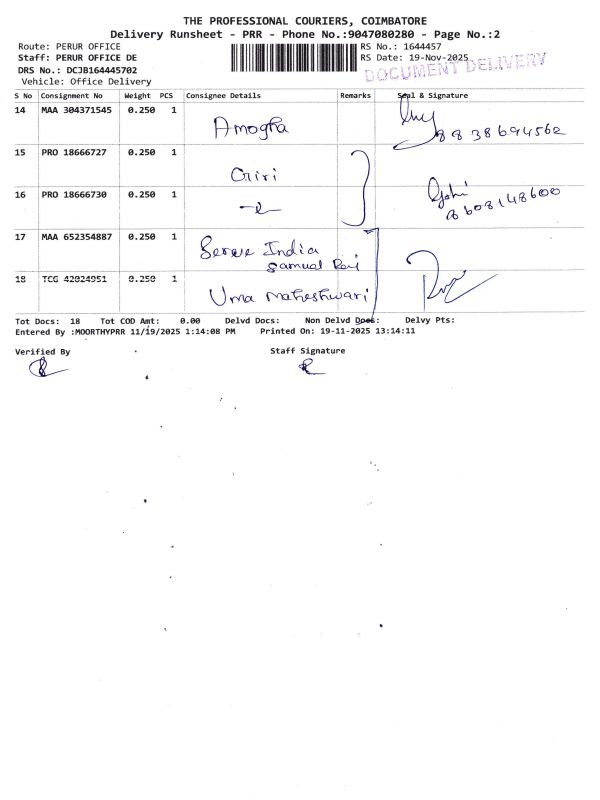 THE PROFESSIONAL COURIERS, COIMBATORE
Delivery Runsheet - PRR - Phone No.:9047080280 - Page No.:2
Route: PERUR OFFICE RS No.: 1644457
Staff: PERUR OFFICE DE RS Date: 19-Nov-2025
DRS No.: DCJB164445702 DOCUMENT DELIVERY
Vehicle: Office Delivery
S No Consignment No Weight PCS Consignee Details Remarks Seal & Signature
14 MAA 304371545 0.250 1 Amogha 8838694562
15 PRO 18666727 0.250 1 Giri
16 PRO 18666730 0.250 1 8608148600
17 MAA 652354887 0.250 1 Serve India
Samual Raj
18 TCG 42024951 0.250 1 Uma Maheshwari
Tot Docs: 18 Tot COD Amt: 0.00 Delvd Docs: Non Delvd Docs: Delvy Pts:
Entered By :MOORTHYPRR 11/19/2025 1:14:08 PM Printed On: 19-11-2025 13:14:11
Verified By Staff Signature